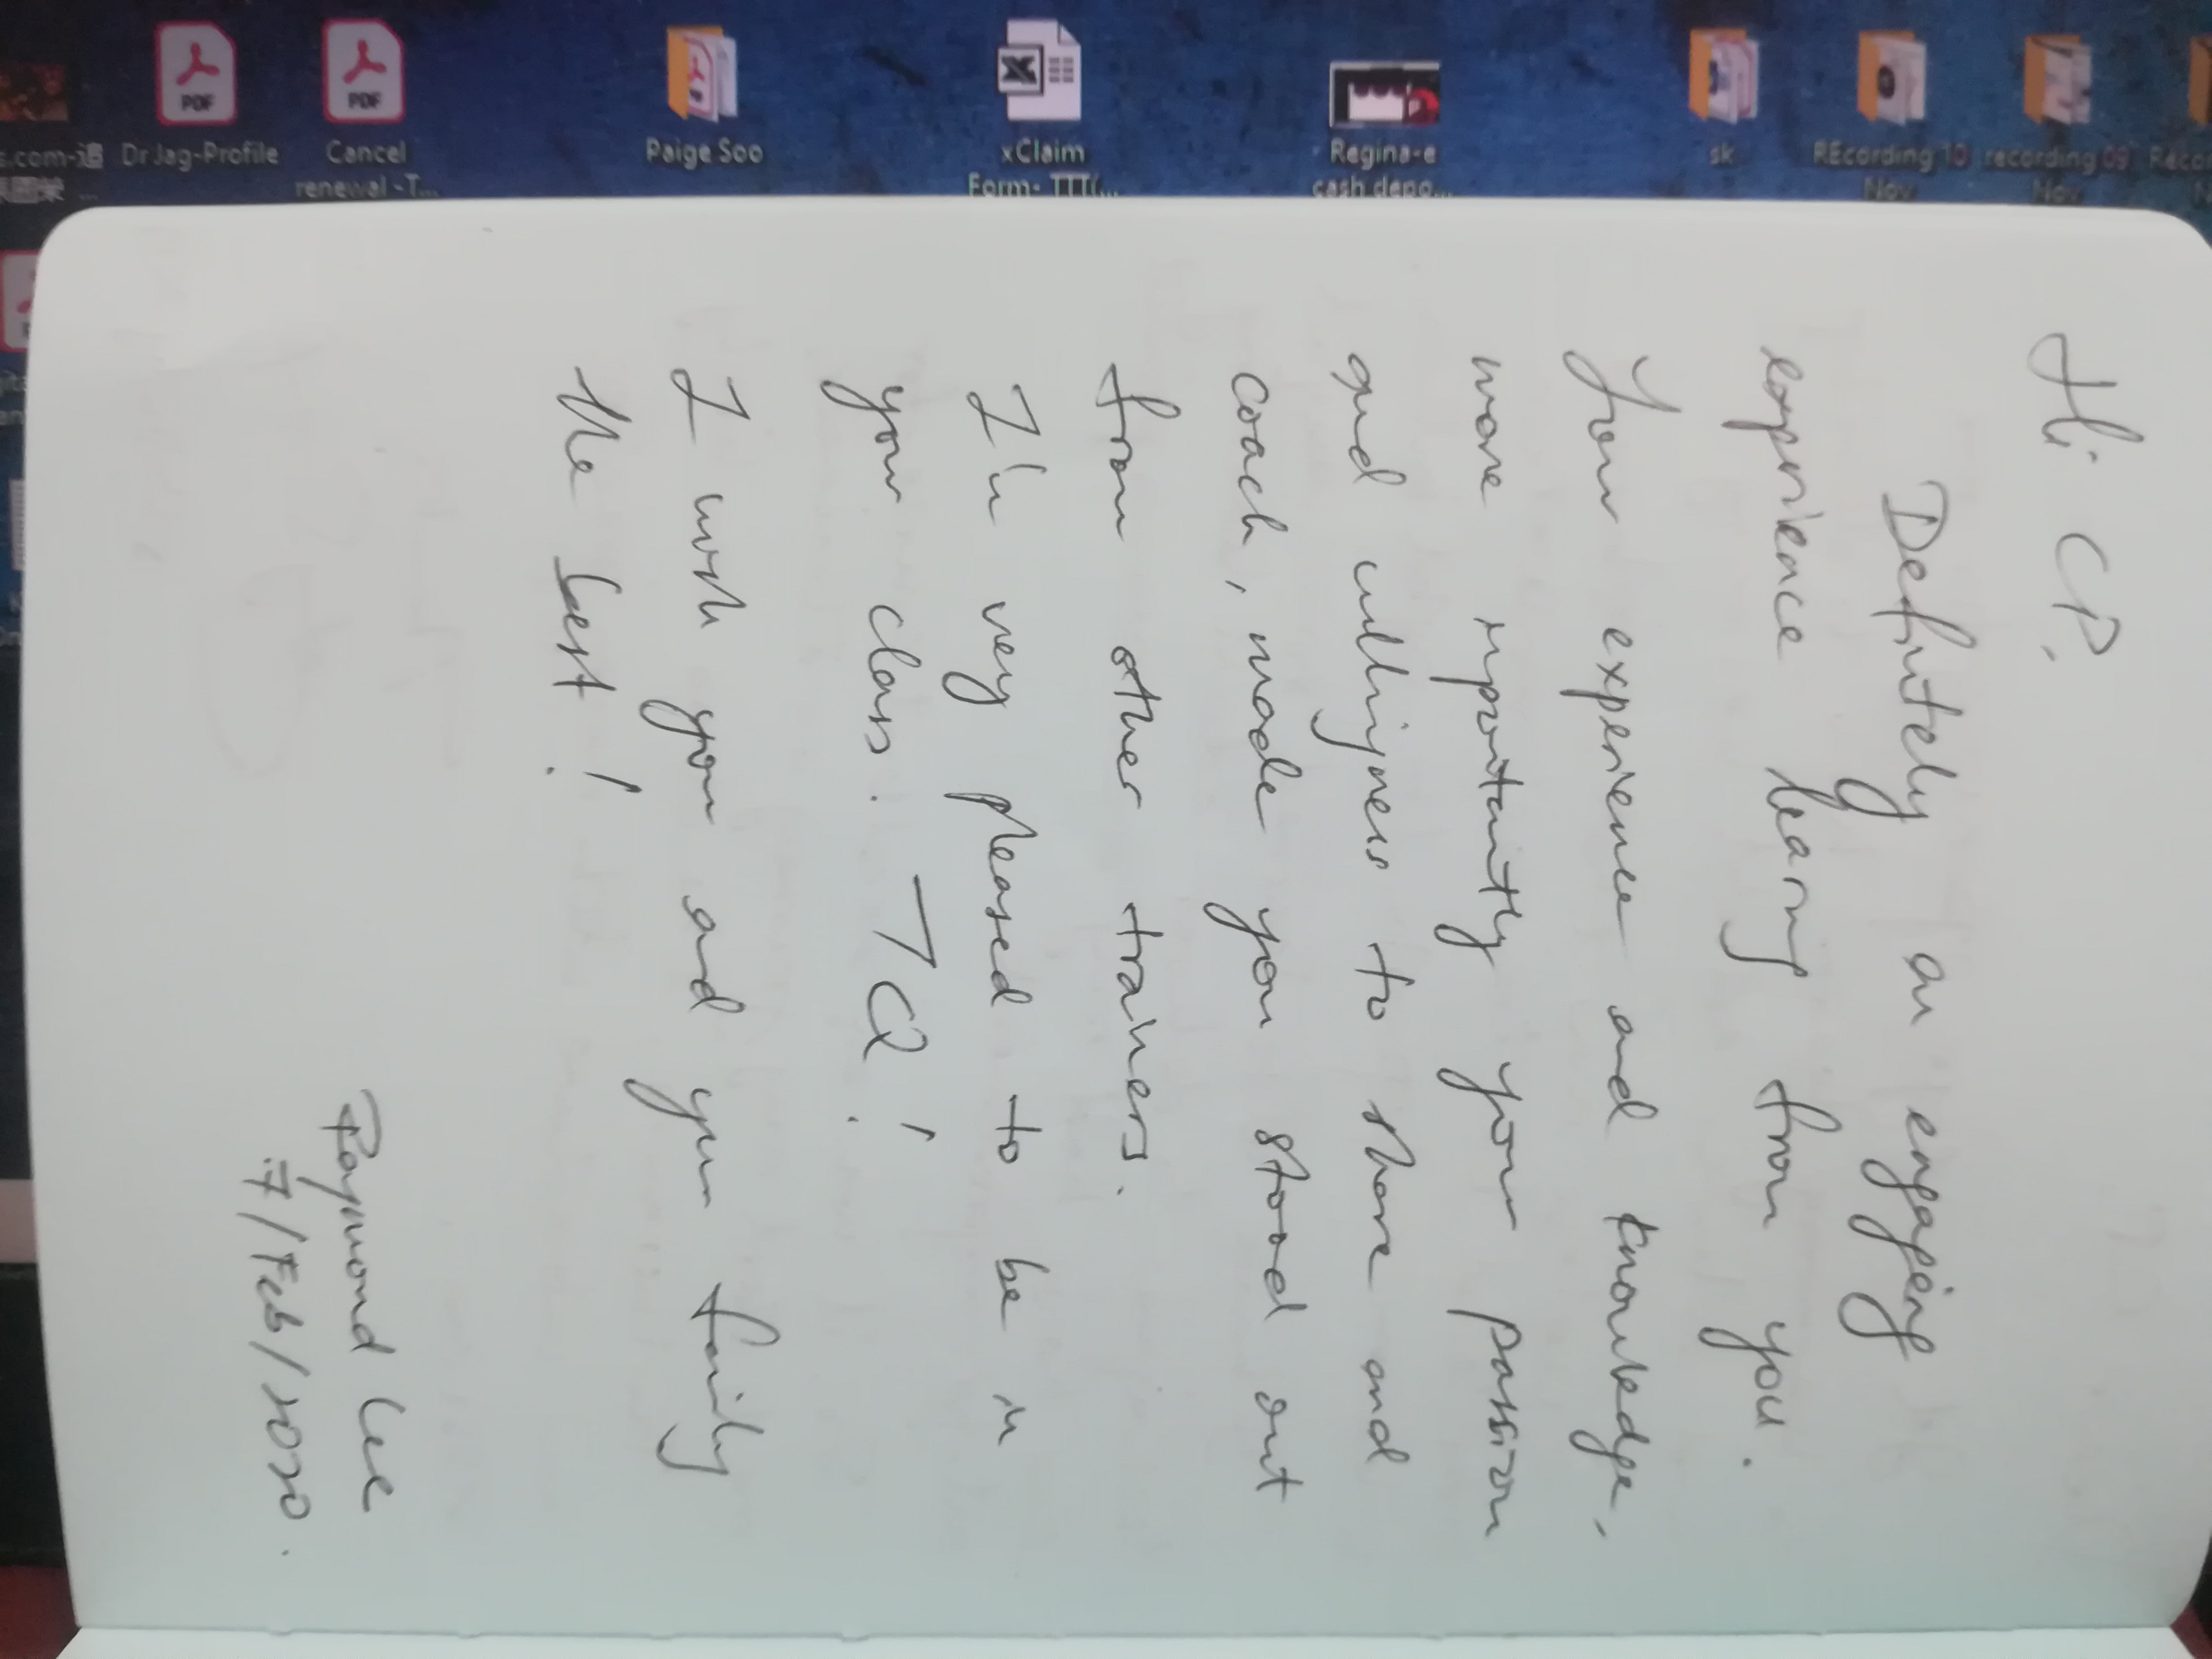 s.com-追
Dr Jag-Profile
Cancel
renewal -T...
Paige Soo
xClaim
Form- TTT(...
Regina-e
cash depo...
sk
REcording 10
Nov
recording 09
Nov
PDF
PDF
Hi CP,
Definitely an engaging
experience learng from you.
Your experience and knowledge,
more importantly your passion
and willingness to share and
coach, made you stood out
from other trainers.
I'm very pleased to be in
your class. TQ!
I wish you and your family
the best!
Raymond Lee
7/Feb/2020.